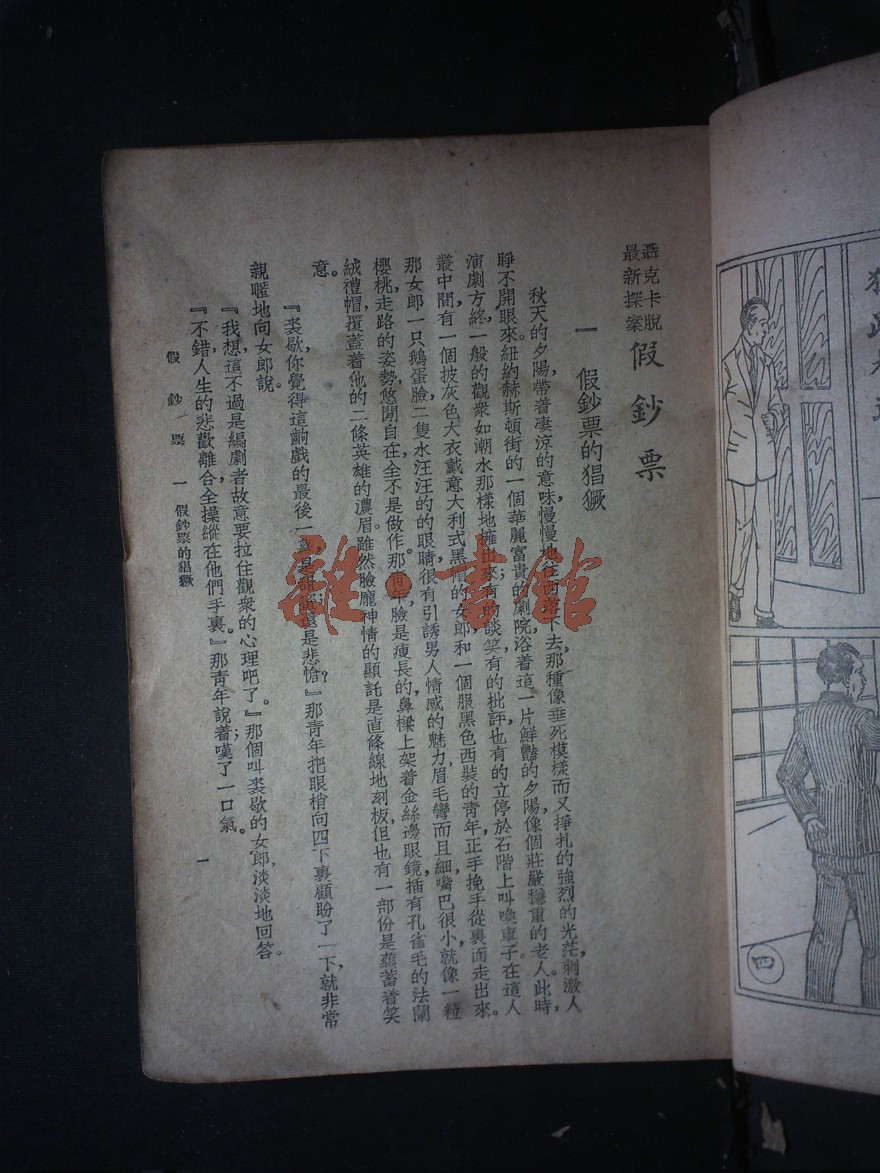 聶克卡脫
最新探案
假鈔票
一 假鈔票的猖獗
秋天的夕陽帶着凄涼的意味慢慢地往西落下去，那種像垂死模樣而又掙扎的強烈的光茫，刺激人
睜不開眼來。紐約赫斯頓街的一個華麗富貴的劇院，浴着這一片鮮豔的夕陽，像個莊嚴穩重的老人。此時，
演劇方終，一般的觀衆如潮水那樣地擁出來；有的談笑，有的批評，也有的立停於石階上叫喚車子。在這人
叢中間，有一個披灰色大衣戴意大利式黑帽的女郎和一個服黑色西裝的青年，正手挽手從裏面走出來。
那女郎一只鵝蛋臉，二隻水汪汪的的眼睛，很有引誘男人情感的魅力，眉毛彎而且細，嘴巴很小，就像一粒
櫻桃，走路的姿勢，悠閒自在，全不是做作。那青年，臉是瘦長的，鼻樑上架着金絲邊眼鏡，插有孔雀毛的法蘭
絨禮帽，覆蓋着他的二條英雄的濃眉。雖然臉龐神情的顯託是直條線地刻板，但也有一部份是蘊蓄着笑
意。
『裘歇，你覺得這齣戲的最後一幕，是甜蜜還是悲愴？』那青年把眼梢向四下裏顧盼了一下，就非常
親暱地向女郎說。
『我想，這不過是編劇者故意要拉住觀衆的心理吧了。』那個叫裘歇的女郎，淡淡地回答。
『不錯，人生的悲歡離合，全操縱在他們手裏。』那青年說着，嘆了一口氣。
假鈔票 一 假鈔票的猖獗
一
四
雜·書館